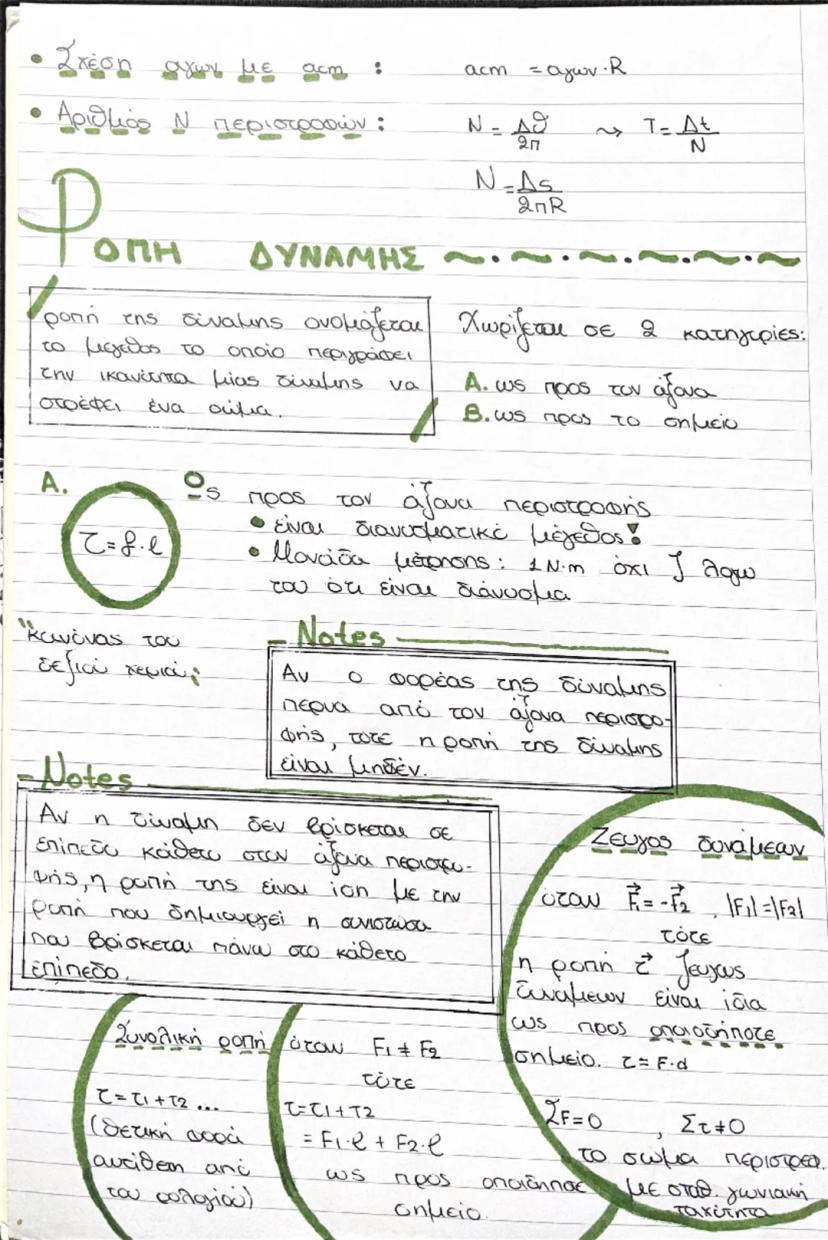 • Σχέση αγων με acm : acm = αγων·R
• Αριθμός N περιστροφών : N = Δθ/2π ⤳ T = Δt/N
N = Δs/2πR
ΡΟΠΗ ΔΥΝΑΜΗΣ ~·~·~·~·~·~
ροπή της δύναμης ονομάζεται
το μέγεθος το οποίο περιγράφει
την ικανότητα μίας δύναμης να
στρέφει ένα σώμα.
Χωρίζεται σε 2 κατηγορίες:
Α. ως προς τον άξονα
Β. ως προς το σημείο
Α. Ως προς τον άξονα περιστροφής
τ = f·l
• είναι διανυσματικό μέγεθος!
• Μονάδα μέτρησης : 1 N·m όχι J λόγω
του ότι είναι διάνυσμα
"κανόνας του
δεξιού χεριού;
- Notes
Αν ο φορέας της δύναμης
περνα από τον άξονα περιστρο-
φής, τότε η ροπή της δύναμης
είναι μηδέν.
- Notes
Αν η δύναμη δεν βρίσκεται σε
επίπεδο κάθετο στον άξονα περιστρο-
φής, η ροπή της είναι ίση με την
ροπή που δημιουργεί η συνιστώσα
που βρίσκεται πάνω στο κάθετο
επίπεδο.
Ζεύγος δυνάμεων
όταν F⃗1 = -F⃗2 , |F1| = |F2|
τότε
η ροπή τ⃗ ζεύγους
δυνάμεων είναι ίδια
ως προς οποιοδήποτε
σημείο. τ = F·d
ΣF=0 , Στ≠0
το σώμα περιστρεφ.
με σταθ. γωνιακή
ταχύτητα
Συνολική ροπή
τ = τ1 + τ2 ...
(θετική φορά
αντίθετη από
του ρολογιού)
όταν F1 ≠ F2
τότε
τ = τ1 + τ2
= F1·l + F2·l
ως προς οποιδήποτε
σημείο.